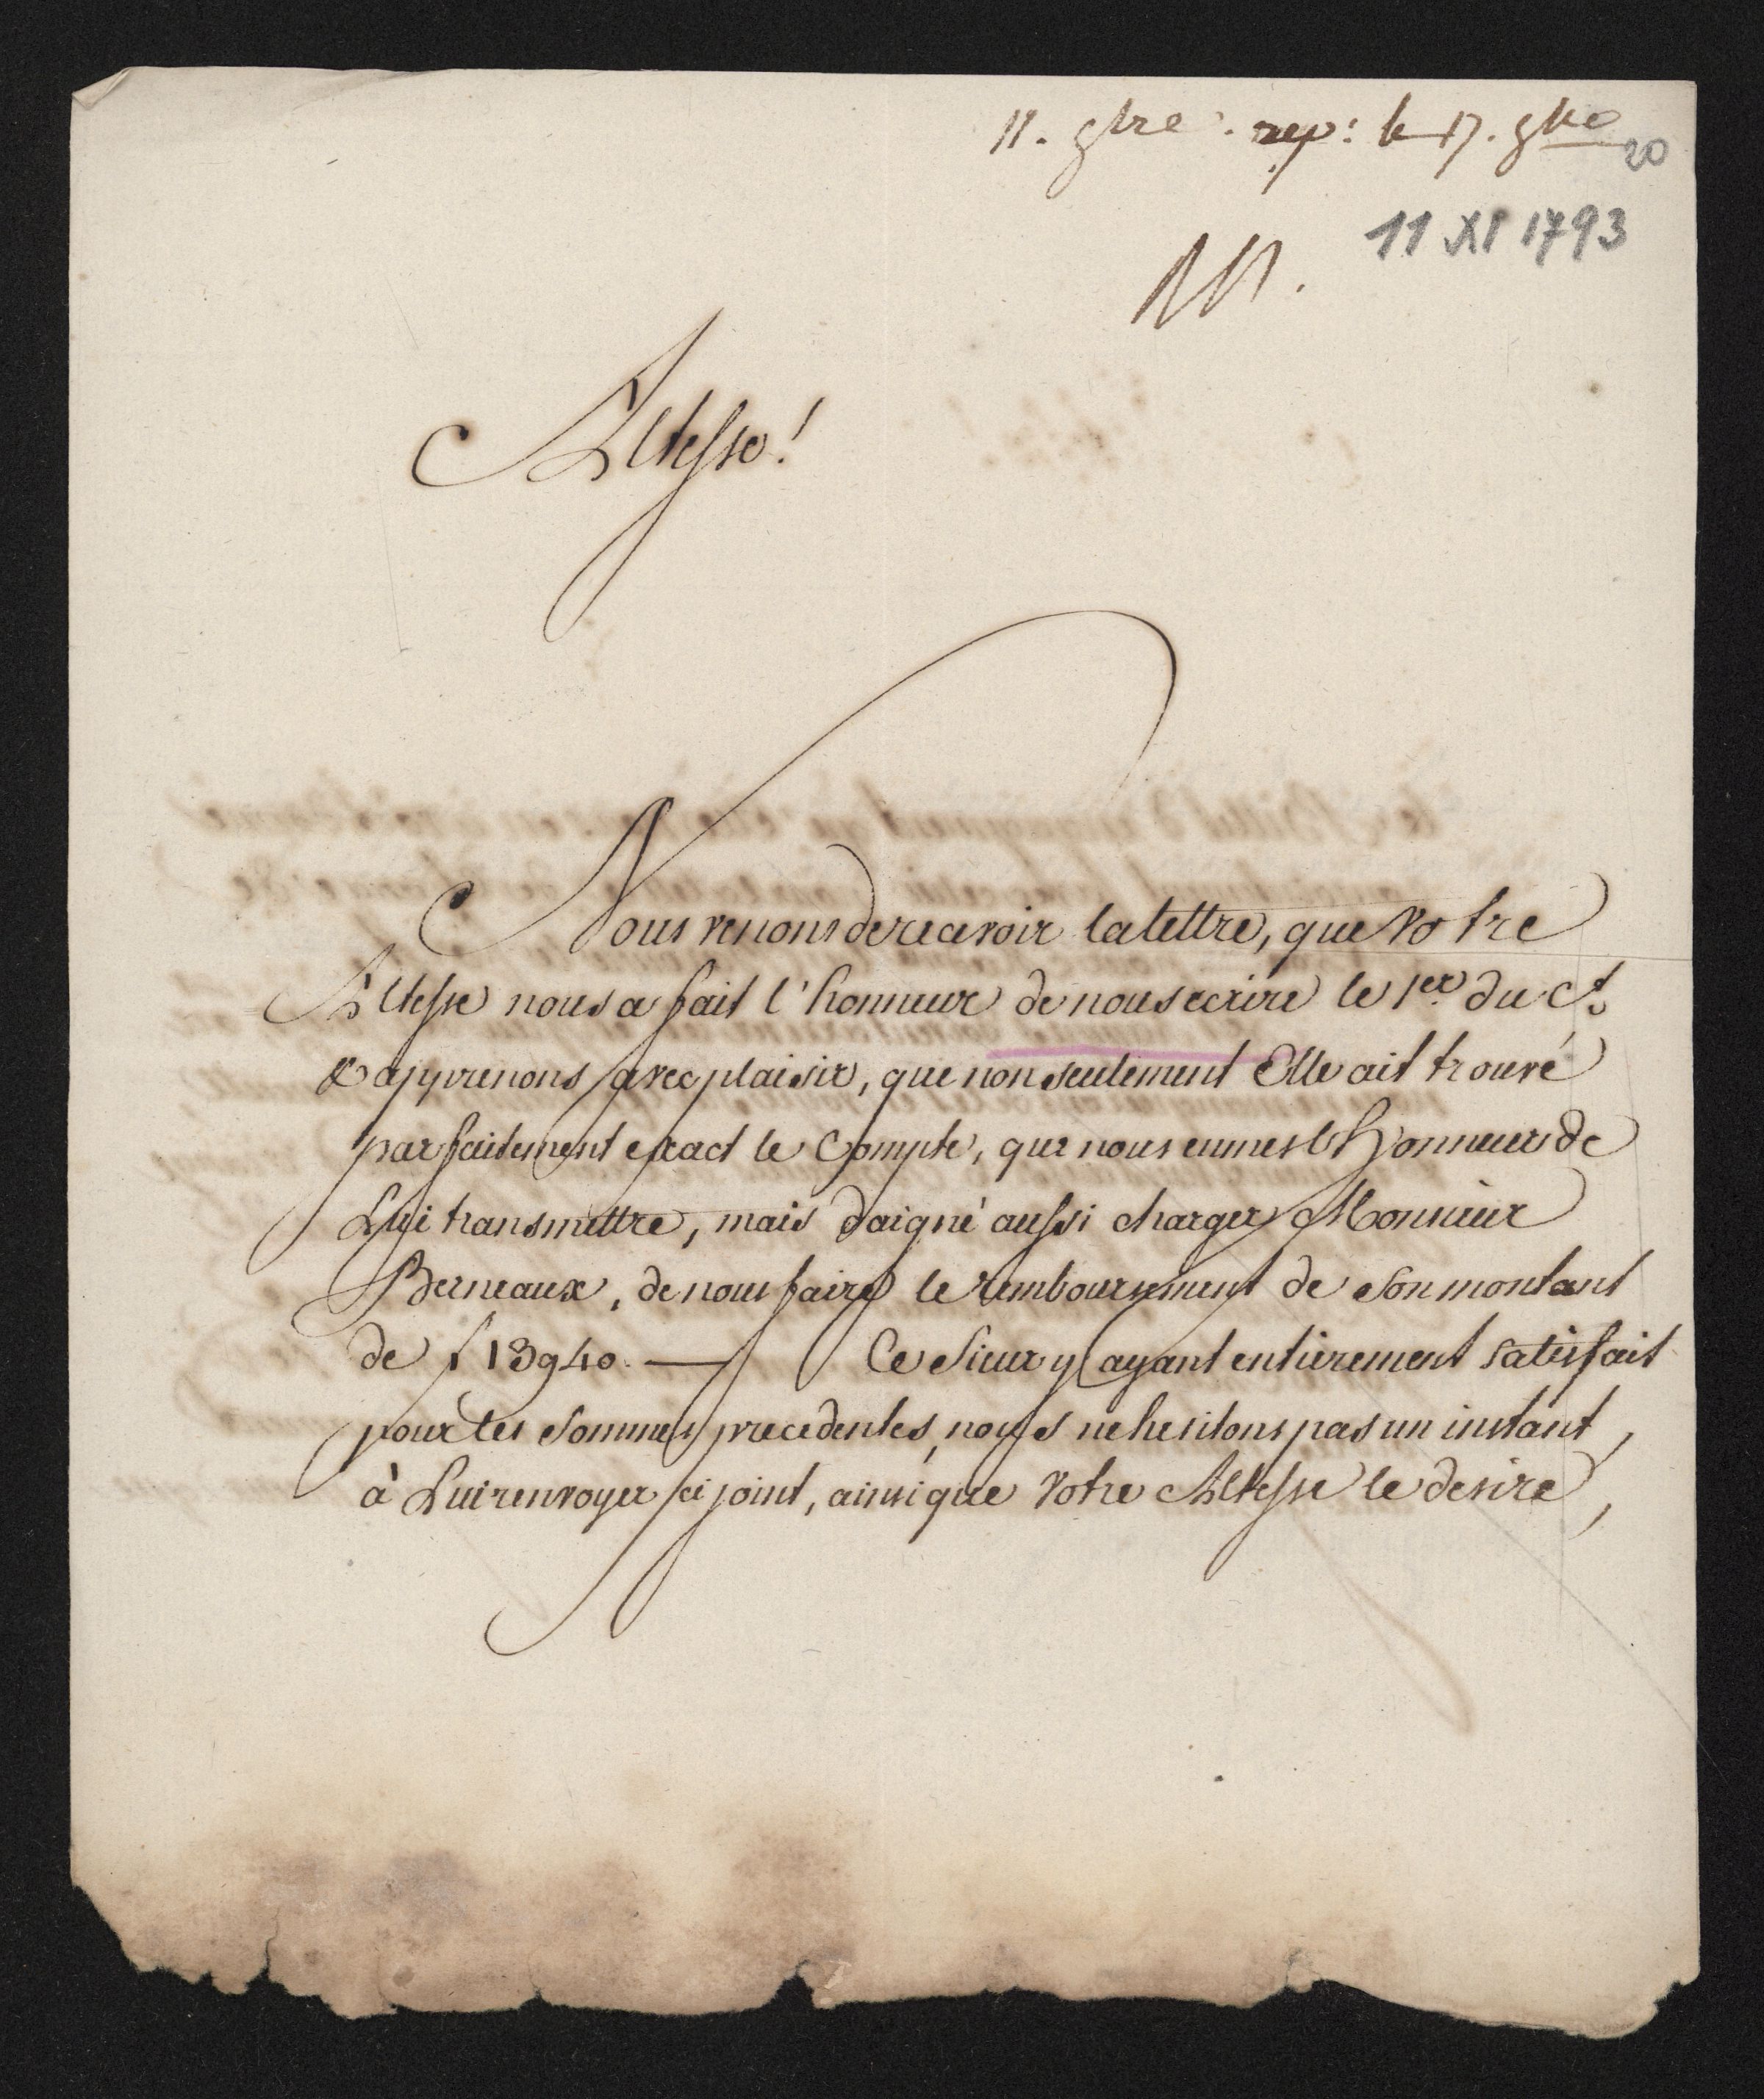 11. 9bre. rep: le 17. 9bre
20
11 XI 1793
Altesse!
Nous venons de recevoir la lettre, que Votre
Altesse nous a fait l'honneur de nous ecrire le 1er. du Ct.
& apprenons avec plaisir, que non seulement Elle ait trouvé
parfaitement exact le Compte, que nous eumes l'honneur de
Lui transmettre, mais daigné aussi charger Monsieur
Berneaux, de nous faire le remboursement de son montant
de f 13940. — Ce Sieur y ayant entièrement satisfait
pour les sommes precedentes, nous ne hesitons pas un instant,
à Lui renvoyer ci joint, ainsi que Votre Altesse le desire,